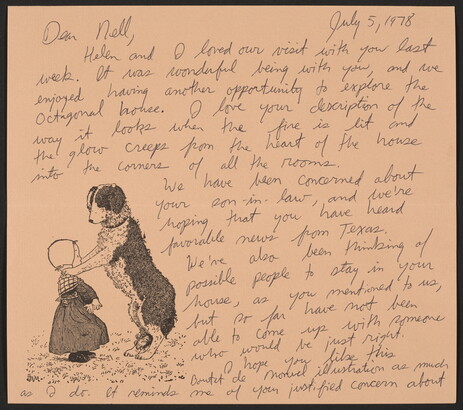 July 5, 1978
Dear Nell,
Helen and I loved our visit with you last
week. It was wonderful being with you, and we
enjoyed having another opportunity to explore the
Octagonal house. I love your description of the
way it looks when the fire is lit and
the glow creeps from the heart of the house
into the corners of all the rooms.
We have been concerned about
your son-in-law, and we're
hoping that you have heard
favorable news from Texas.
We've also been thinking of
possible people to stay in your
house, as you mentioned to us,
but so far have not been
able to come up with someone
who would be just right.
I hope you like this
Boutet de Monvel illustration as much
as I do. It reminds me of your justified concern about